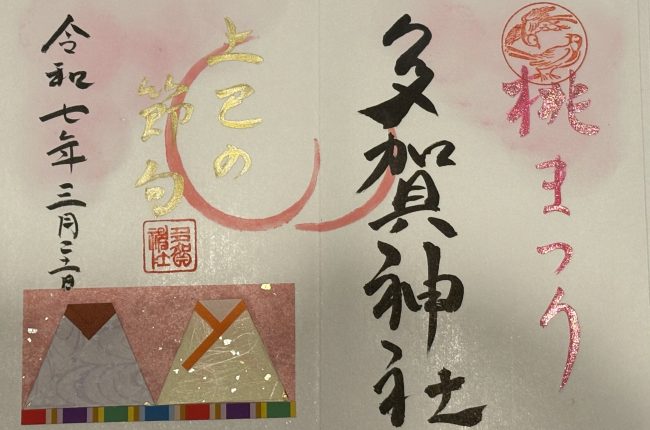 桃まつり
多賀神社
上巳の
節句
多賀
神社
令和七年三月二十一日